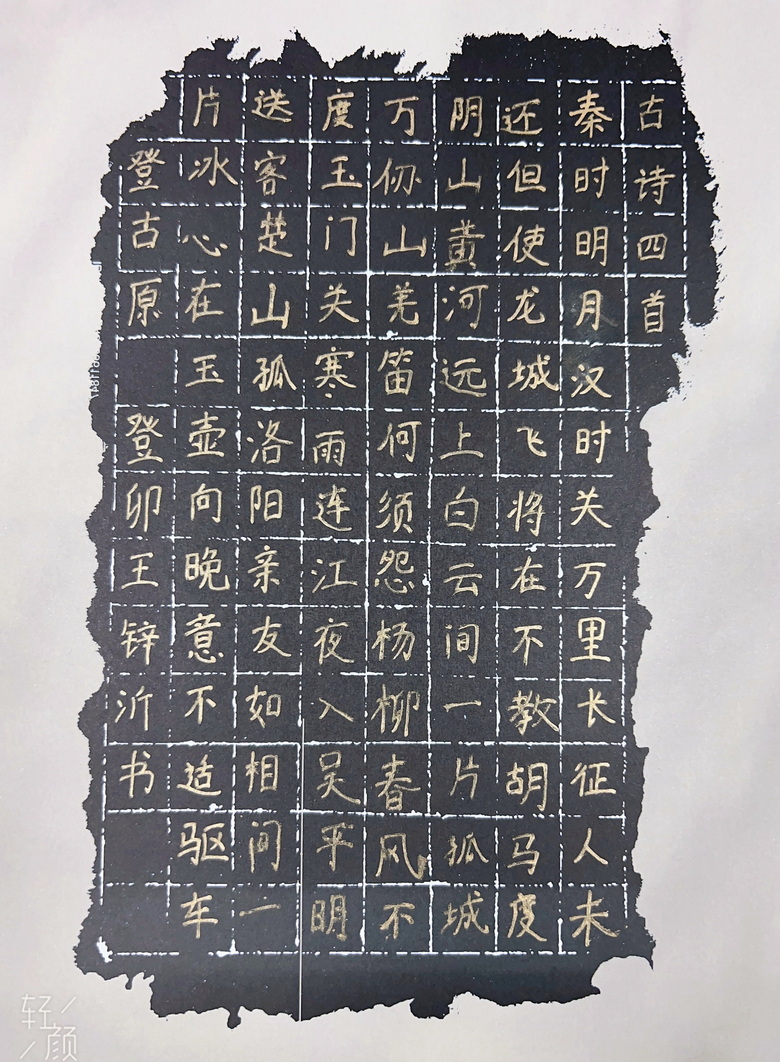 古诗四首
秦时明月汉时关万里长征人未
还但使龙城飞将在不教胡马度
阴山黄河远上白云间一片孤城
万仞山羌笛何须怨杨柳春风不
度玉门关寒雨连江夜入吴平明
送客楚山孤洛阳亲友如相问一
片冰心在玉壶向晚意不适驱车
登古原 登卯王锌沂书
轻颜